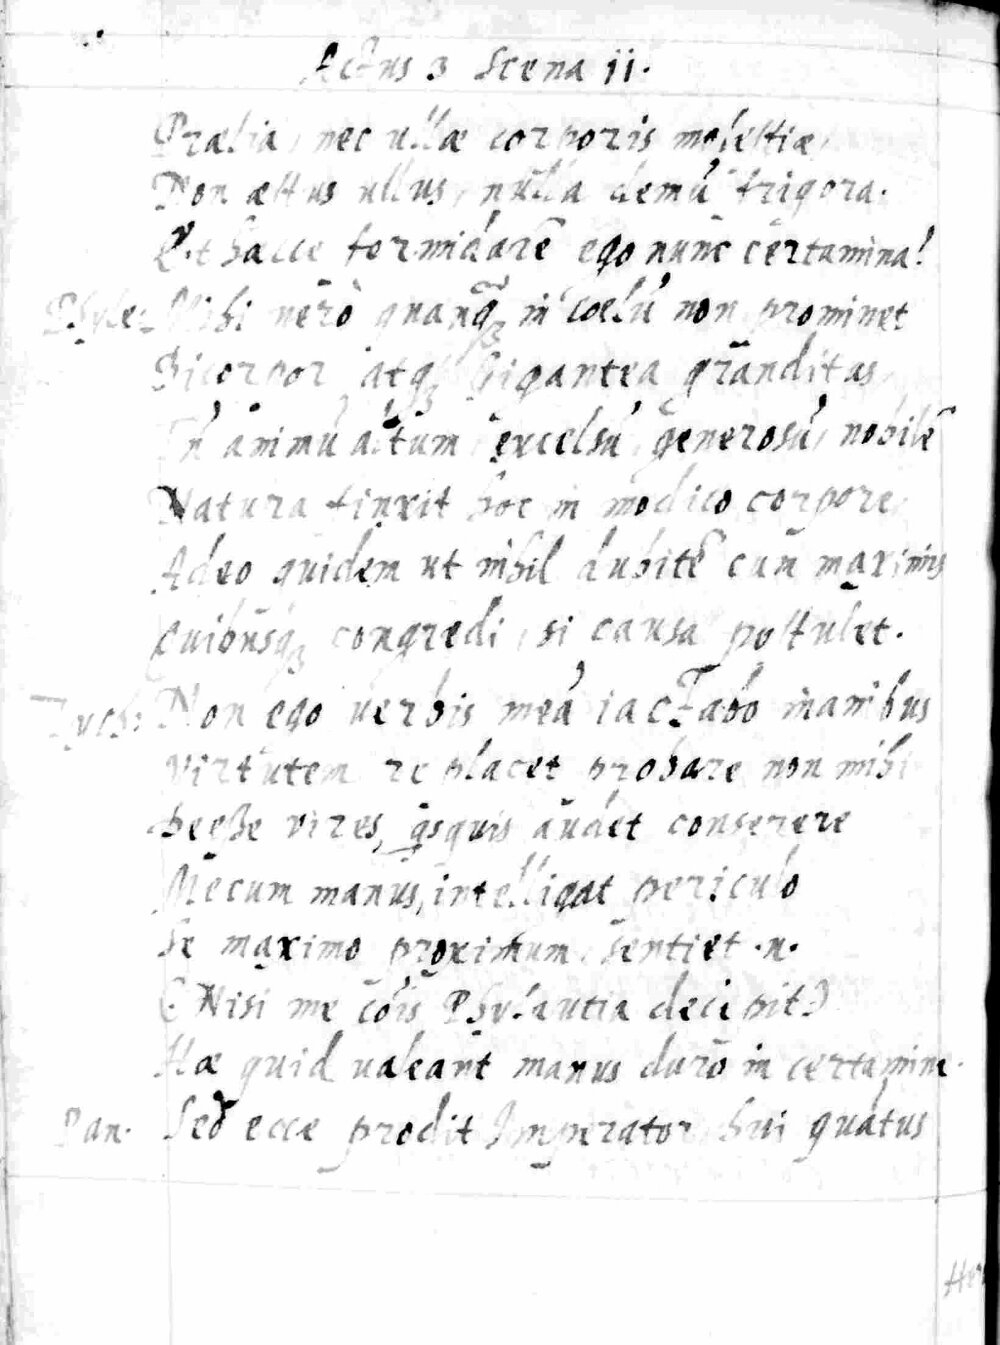 Actus 3 Scena ii.
Prælia, nec ullæ corporis molestiæ,
Non æstus ullus, nulla demũ frigora.
Et hacce formidarẽ ego nunc certamina!
Phyle: Mihi verò quanq̃ in coelũ non prominet
Bicorpor atq; Gigantea granditas,
Tñ animũ altum, excelsũ, generosũ, nobilẽ
Natura finxit hoc in modico corpore,
Adeo quidem ut nihil dubitẽ cum maximis
Quibusq; congredi, si causa postulet.
Tych: Non ego verbis meã iactabo inanibus
Virtutem re placet probare non mihi
Deeße vires, q̃squis audet conserere
Mecum manus, intelligat periculo
Se maximo proximum, sentiet .n.
(Nisi me cõis Phylautia decipit)
Hæ quid valeant manus duro in certamine.
Pan. Sed ecce prodit Imperator hui quãtus